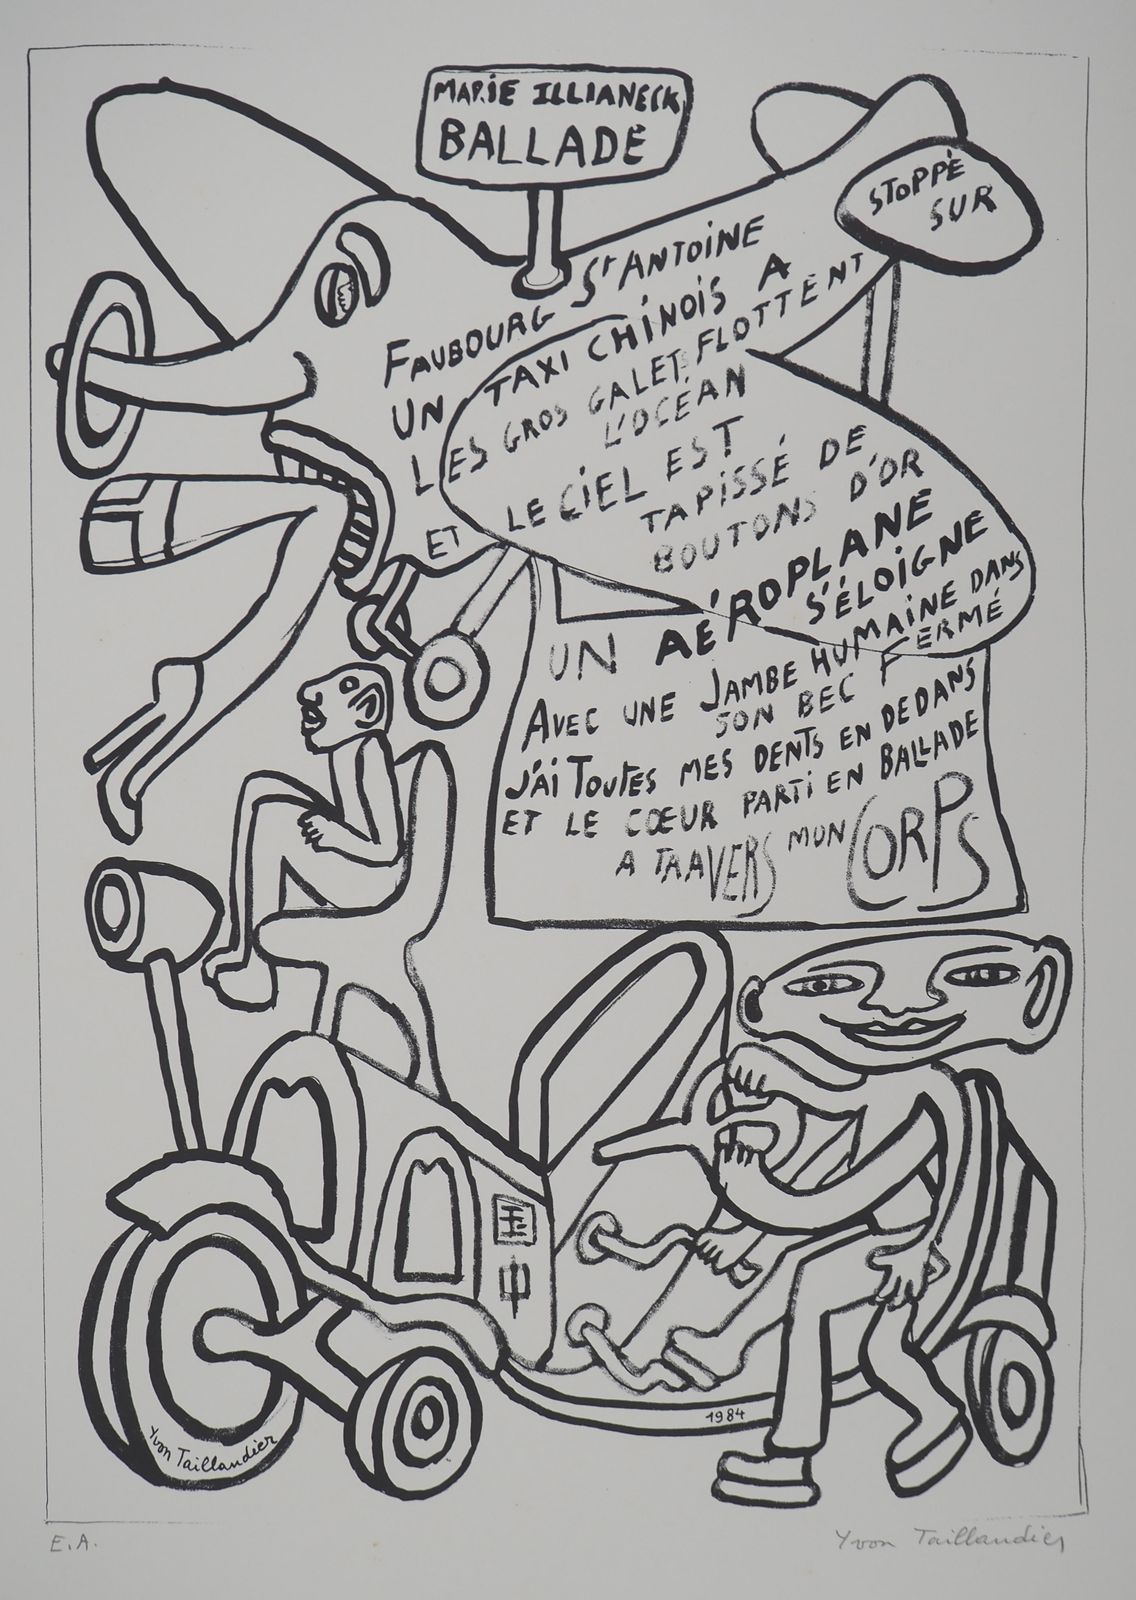 MARIE ILLIANECK
BALLADE
STOPPÉ
SUR
FAUBOURG St ANTOINE
UN TAXI CHINOIS A
LES GROS GALETS FLOTTENT
L'OCÉAN
ET LE CIEL EST
TAPISSÉ DE
BOUTONS D'OR
UN AÉROPLANE
S'ÉLOIGNE
AVEC UNE JAMBE HUMAINE DANS
SON BEC FERMÉ
J'AI TOUTES MES DENTS EN DEDANS
ET LE CŒUR PARTI EN BALLADE
A TRAVERS MON CORPS
国
中
1984
Yvon Taillandier
E.A.
Yvon Taillandier